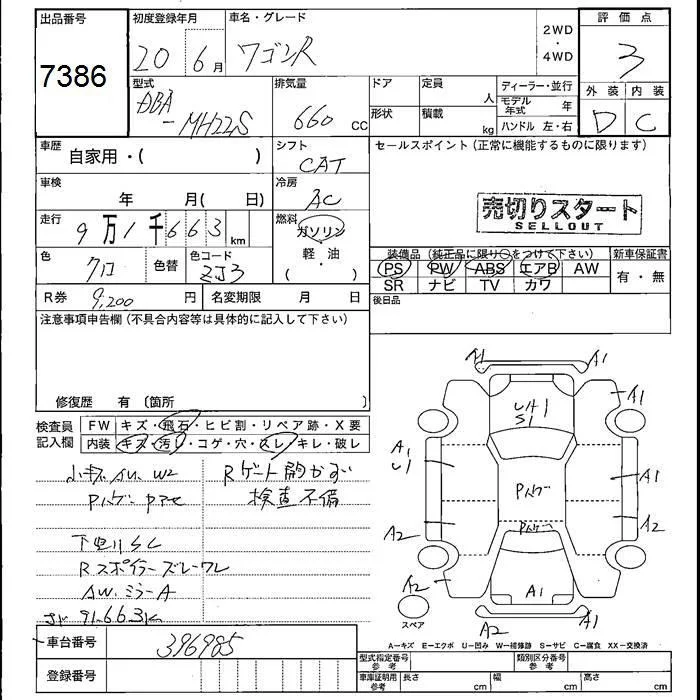 出品番号 初度登録年月 車名・グレード 2WD・4WD 評価点
7386 20 6月 ワゴンR 3
型式 排気量 ドア 定員 人 ディーラー・並行 外装 内装
DBA-MH22S 660 CC 形状 積載 kg モデル年式 年 D C
ハンドル 左・右
車歴 自家用・( ) シフト CAT セールスポイント(正常に機能するものに限ります)
車検 年 月( 日) 冷房 AC
売切りスタート
SELLOUT
走行 9万1千663km 燃料 ガソリン
軽・油
( )
色 クロ 色替 色コード ZJ3
装備品(純正品に限り○をつけて下さい) 新車保証書
PS PW ABS エアB AW 有・無
SR ナビ TV カワ
R券 9,200円 名変期限 月 日 後日品
注意事項申告欄(不具合内容等は具体的に記入して下さい)
修復歴 有(箇所 )
検査員記入欄 FW キズ・飛石・ヒビ割・リペア跡・X要
内装 キズ・汚・コゲ・穴・スレ・キレ・破レ
Rゲート開かず
検査不備
Rスポイラーズレワレ
AW.ミラーA
91.663K
A1 A1
U1 A1
S1
A1 U1 A1
A2 A2
A2 A1
A2 A1
スペア
A-キズ E-エクボ U-凹み W-補修跡 S-サビ C-腐食 XX-交換済
車台番号 396985
登録番号
型式指定番号 参考 類別区分番号 参考
車庫証明用 参考 長さ cm 幅 cm 高さ cm